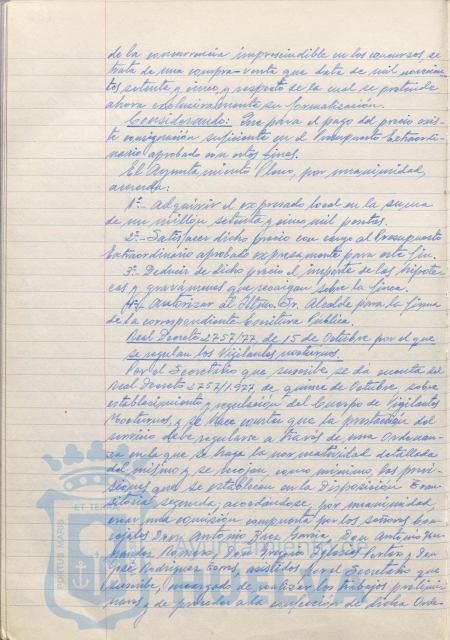 de la concurrencia imprescindible en los concursos, se
trata de una compra-venta que data de mil novecien-
tos setenta y cinco y respecto de la cual se pretende
ahora exclusivamente su formalización.
Considerando: Que para el pago del precio exis-
te consignación suficiente en el Presupuesto Extraordi-
nario aprobado con estos fines.
El Ayuntamiento Pleno, por unanimidad,
acuerda:
1º.- Adquirir el expresado local en la suma
de un millón setenta y cinco mil pesetas.
2º.- Satisfacer dicho precio con cargo al Presupuesto
Extraordinario aprobado expresamente para este fin.
3º.- Deducir de dicho precio el importe de las hipote-
cas y gravámenes que recaigan sobre la finca.
4º.- Autorizar al Iltmo. Sr. Alcalde para la firma
de la correspondiente Escritura Pública.
Real Decreto 2757/77, de 15 de Octubre por el que
se regulan los Vigilantes nocturnos.
Por el Secretario que suscribe, se da cuenta del
Real Decreto 2757/1.977 de quince de Octubre, sobre
establecimiento y regulación del Cuerpo de Vigilantes
Nocturnos, y se hace constar que la prestación del
servicio debe regularse a través de una Ordenan-
za en la que se haga la normatividad detallada
del mismo y se recojan como mínimo, las previ-
siones que se establecen en la Disposición Tran-
sitoria segunda, acordándose, por unanimidad,
crear una comisión compuesta por los señores Con-
cejales Don Antonio García, Don Antonio Her-
nández Romero, Don Iglesias y Don
José Rodríguez asistidos por el Secretario que
suscribe, encargada de realizar los trabajos prelimi-
nares y de proceder a la confección de dicha Orde-
PORTUS MARIS
ET TERRAE